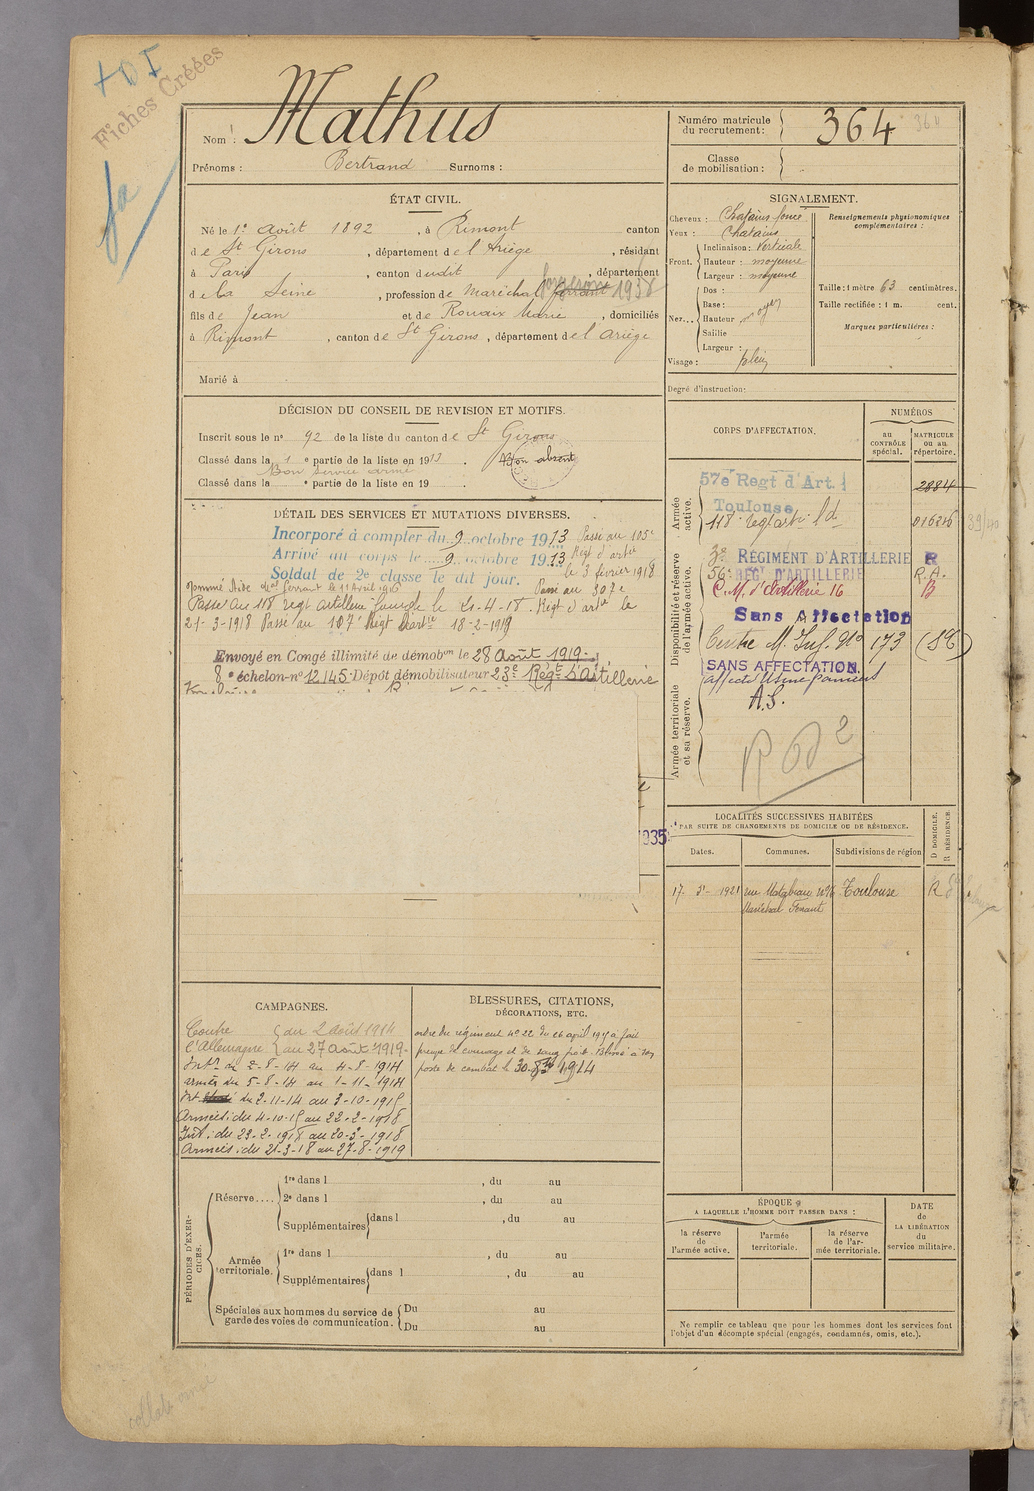 + D I
Fiches Créées
fa
Nom : Mathus
Prénoms : Bertrand Surnoms :
Numéro matricule du recrutement : 364
Classe de mobilisation :
ÉTAT CIVIL.
Né le 1er Août 1892, à Rimont canton
de St Girons, département de l'Ariège, résidant
à Paris, canton dudit, département
de la Seine, profession de Maréchal ferrant 1938
fils de Jean et de Rouaix Marie, domiciliés
à Rimont, canton de St Girons, département de l'Ariège
Marié à
SIGNALEMENT.
Cheveux : Chatains foncé
Yeux : Chatains
Front. Inclinaison : Verticale
Hauteur : moyenne
Largeur : moyenne
Nez... Dos :
Base :
Hauteur moyen
Saillie
Largeur :
Visage : plein
Renseignements physionomiques complémentaires :
Taille : 1 mètre 63 centimètres.
Taille rectifiée : 1 m. cent.
Marques particulières :
Degré d'instruction :
DÉCISION DU CONSEIL DE REVISION ET MOTIFS.
Inscrit sous le n° 92 de la liste du canton de St Girons
Classé dans la 1e partie de la liste en 1913. Bon absent
Bon service armé
Classé dans la e partie de la liste en 19
DÉTAIL DES SERVICES ET MUTATIONS DIVERSES.
Incorporé à compter du 9 octobre 1913 Passé au 105e
Arrivé au corps le 9 octobre 1913 Régt d'artie
Soldat de 2e classe le dit jour. le 3 février 1918
Nommé Aide Mal ferrant le 11 Avril 1916 Passé au 307e
Passé au 118 regt artillerie lourde le 21-4-18. Régt d'artie le
21-3-1918 Passé au 107e Régt d'artie 18-2-1919
Envoyé en Congé illimité de démobon le 28 Août 1919.
8e échelon n° 12145 Dépôt démobilisateur 23e Régt d'Artillerie
935
CORPS D'AFFECTATION.
NUMÉROS
au CONTRÔLE spécial.
MATRICULE ou au répertoire.
Armée active.
57e Regt d'Art. 2884
Toulouse
118e reg art ld 016216 39/40
Disponibilité et réserve de l'armée active.
3e RÉGIMENT D'ARTILLERIE R
56e REGt D'ARTILLERIE R.A.
C.M. d'Artillerie 16 B
Sans Affectation
Centre M. Inf. No 173 (S6)
Armée territoriale et sa réserve.
SANS AFFECTATION.
affecté Usine
A.S.
LOCALITÉS SUCCESSIVES HABITÉES
PAR SUITE DE CHANGEMENTS DE DOMICILE OU DE RÉSIDENCE.
Dates. Communes. Subdivisions de région D DOMICILE. R RÉSIDENCE.
17-3-1921 rue Matabiau n°6 Toulouse R
Maréchal Ferrant
CAMPAGNES.
Contre l'Allemagne du 2 Août 1914
au 27 Août 1919.
Intr du 2-8-14 au 4-8-1914
armées du 5-8-14 au 1-11-1914
Int du 2-11-14 au 3-10-1915
Armées : du 4-10-15 au 22-2-1918
Int : du 23-2-1918 au 20-3-1918
Armées : du 21-3-18 au 27-8-1919
BLESSURES, CITATIONS,
DÉCORATIONS, ETC.
ordre du régiment n° 22 du 26 avril 1915 a fait
preuve de courage et de sang froid. Blessé à son
poste de combat le 30- 1914
PÉRIODES D'EXERCICES.
Réserve.... 1re dans l , du au
2e dans l , du au
Supplémentaires dans l , du au
Armée territoriale. 1re dans l , du au
Supplémentaires dans l , du au
Spéciales aux hommes du service de garde des voies de communication. Du au
Du au
ÉPOQUE
A LAQUELLE L'HOMME DOIT PASSER DANS :
la réserve de l'armée active.
l'armée territoriale.
la réserve de l'armée territoriale.
DATE de LA LIBÉRATION du service militaire.
Ne remplir ce tableau que pour les hommes dont les services font
l'objet d'un décompte spécial (engagés, condamnés, omis, etc.).